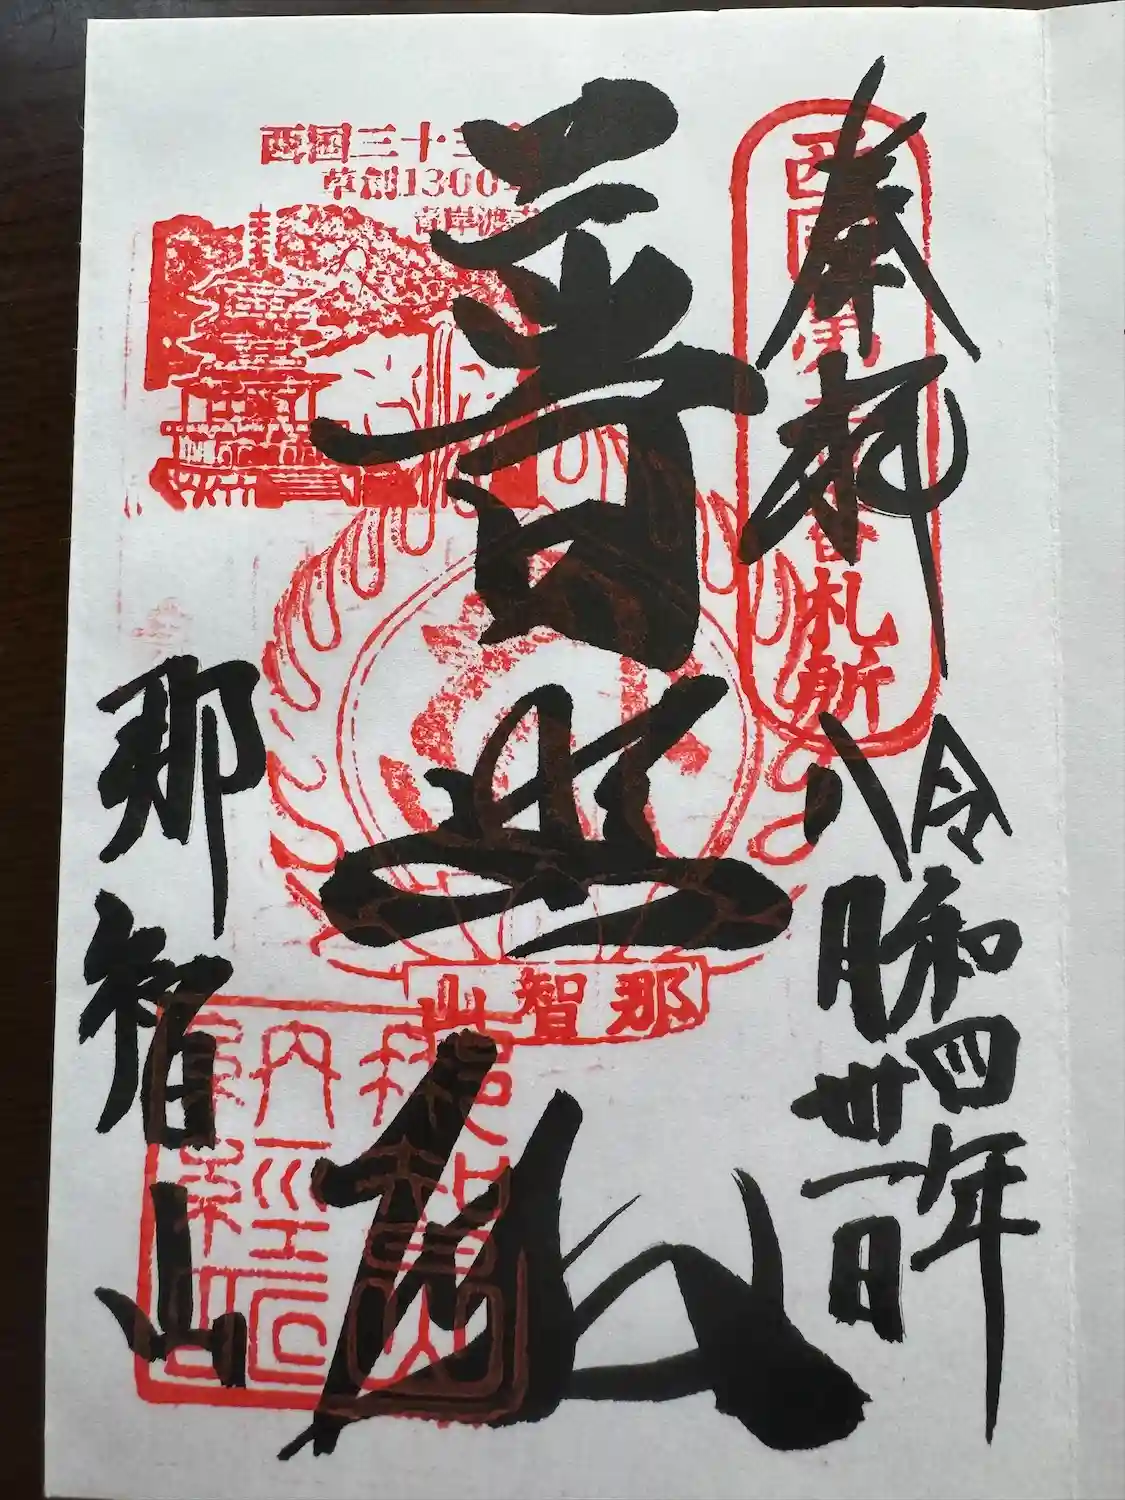 奉拝
西国第一番札所
令和四年
八月卅一日
普照殿
西国三十三所
草創1300年
青岸渡寺
那智山
那智山